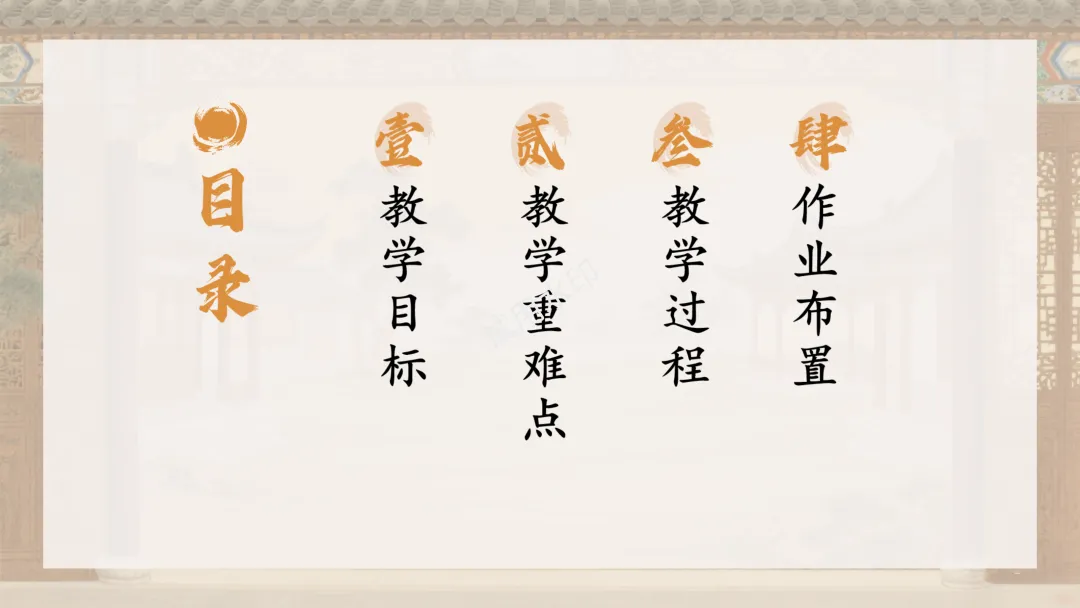 目录
壹
教学目标
贰
教学重难点
叁
教学过程
肆
作业布置